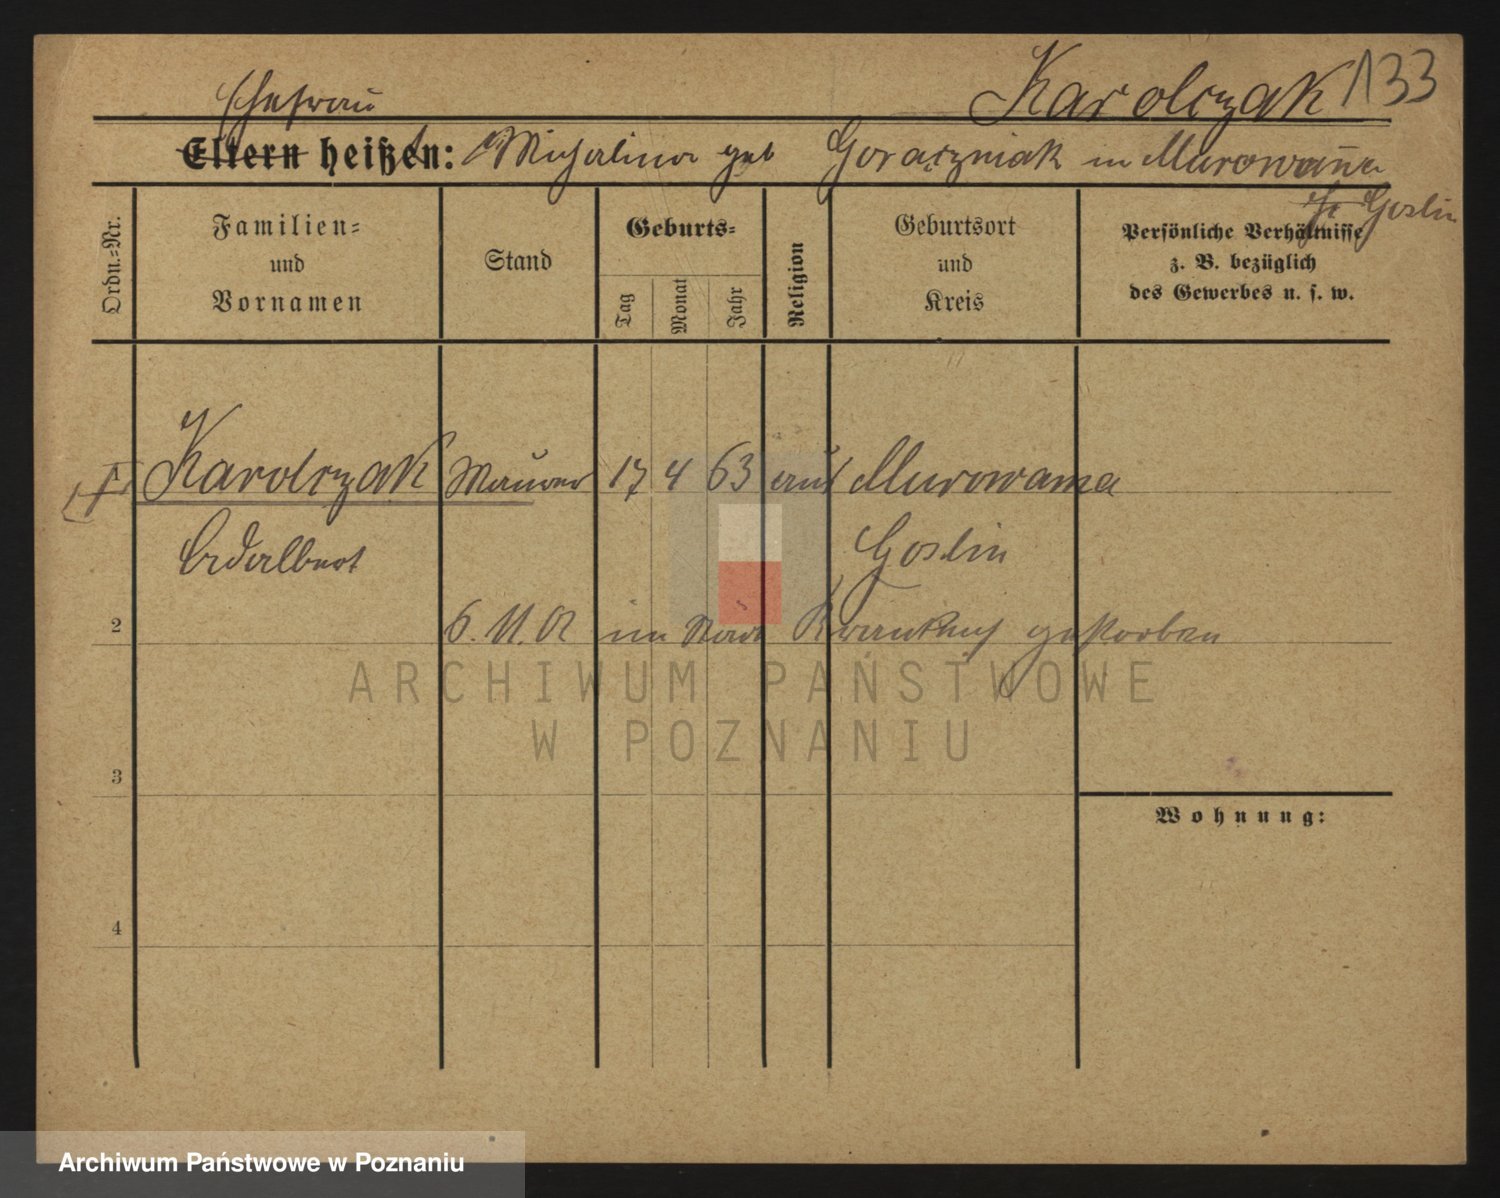 Karolczak 133
Ehefrau
Eltern heißen: Michalina geb Gorączniak in Murowana
Goslin
Ordn.-Nr.
Familien-
und
Vornamen
Stand
Geburts-
Tag
Monat
Jahr
Religion
Geburtsort
und
Kreis
Persönliche Verhältnisse
z. B. bezüglich
des Gewerbes u. s. w.
Karolczak Maurer 17 4 63 Murowana
Adalbert Goslin
2
6. 11. im Stadt Krankenhs gestorben
3
4
Wohnung:
ARCHIWUM PAŃSTWOWE
W POZNANIU
Archiwum Państwowe w Poznaniu